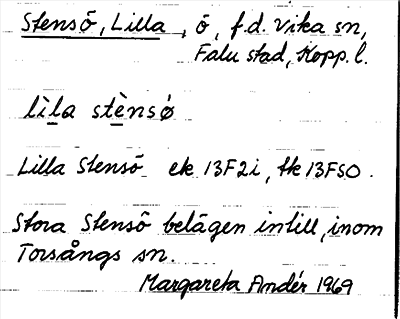 Stensö, Lilla, ö, f.d. Vika sn,
Falu stad, Kopp. l.
lìla stènsó
Lilla Stensö ek 13F2i, tk 13FSO.
Stora Stensö belägen intill, inom
Torsångs sn.
Margareta Andér 1969